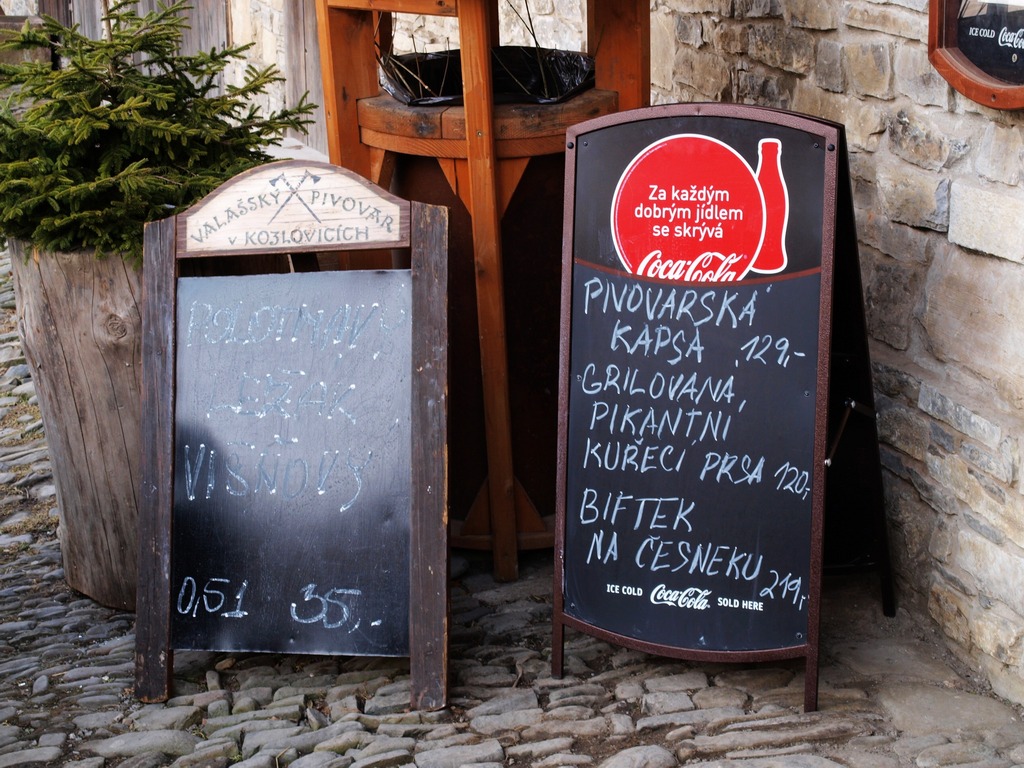 VALAŠSKÝ PIVOVAR
V KOZLOVICÍCH
POLOTMAVÝ
LEŽÁK
VIŠŇOVÝ
0,5l 35,-
Za každým
dobrým jídlem
se skrývá
Coca-Cola
PIVOVARSKÁ
KAPSA 129,-
GRILOVANÁ,
PIKANTNÍ
KUŘECÍ PRSA 120,-
BIFTEK
NA ČESNEKU 219,-
ICE COLD Coca-Cola SOLD HERE
ICE COLD Coca